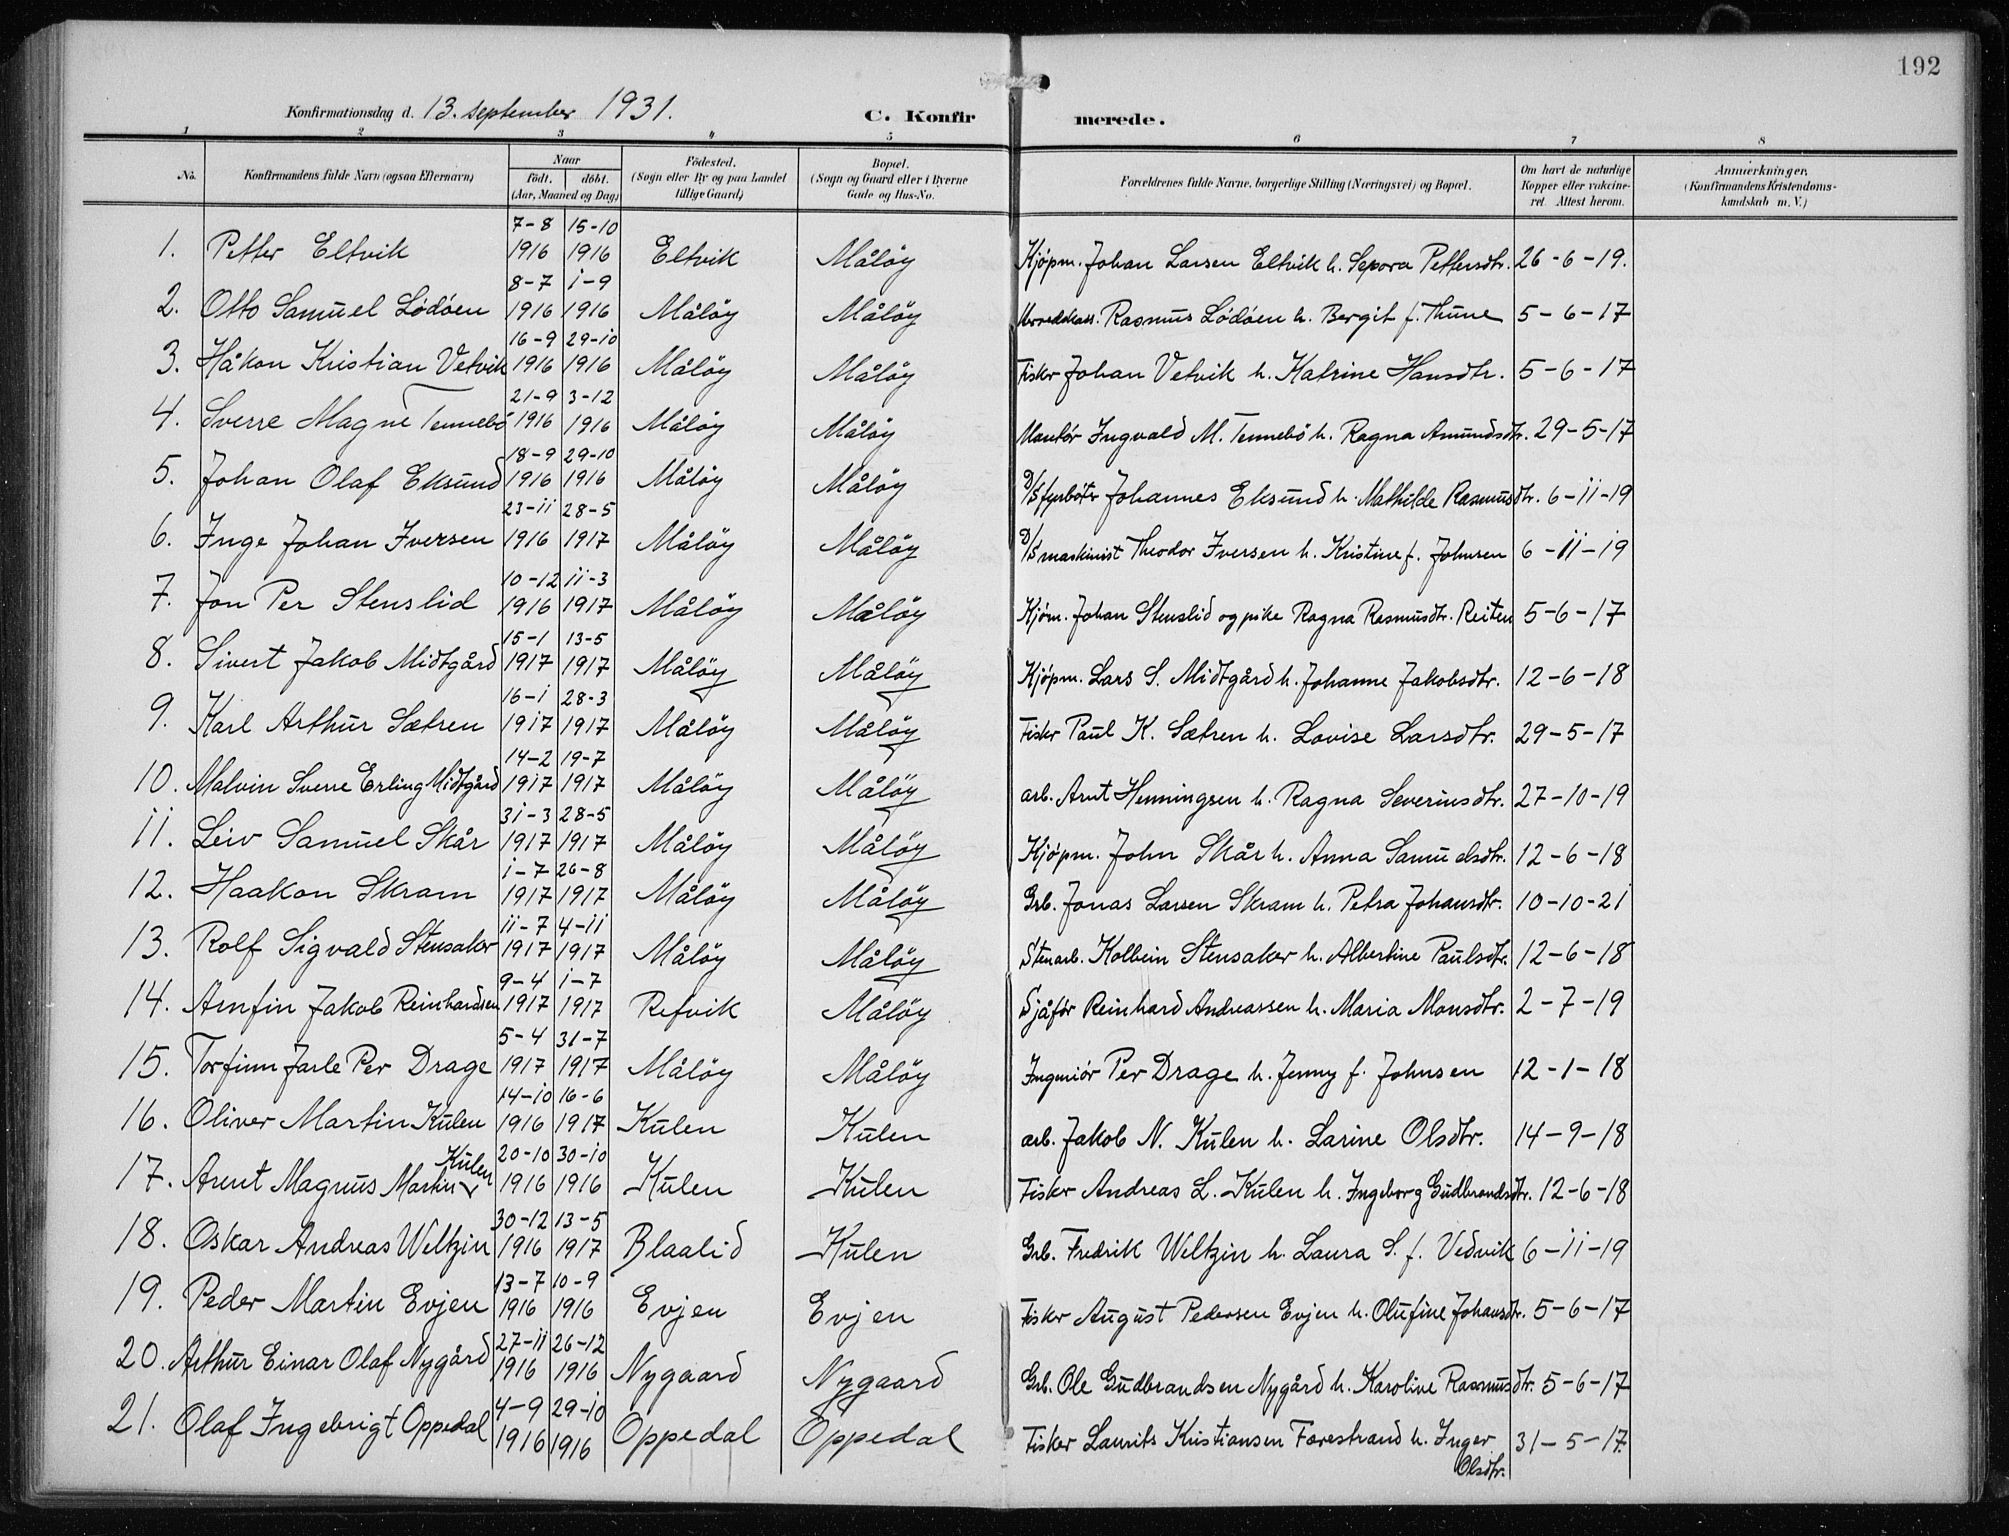 192
Konfirmationsdag d. 13. september 1931. C. Konfirmerede.
1 2 3 4 5 6 7 8
No. Konfirmandens fulde Navn (ogsaa Efternavn) Naar født. døbt. (Aar, Maaned og Dag) Födested. (Sogn eller By og paa Landet tillige Gaard) Bopæl. (Sogn og Gaard eller i Byerne Gade og Hus-No. Forældrenes fulde Navne, borgerlige Stilling (Næringsvei) og Bopæl. Om havt de naturlige Kopper eller vakcineret. Attest herom. Anmærkninger. (Konfirmandens Kristendomskundskab m. V.)
7-8 15-10
1. Petter Eltvik 1916 1916 Eltvik Måløy Kjøpm. Johan Larsen Eltvik h. Sepora Pettersdtr. 26-6-19.
8-7 1-9
2. Otto Samuel Lødøen 1916 1916 Måløy Måløy Rasmus Lødøen h. Bergit f. Thune 5-6-17
16-9 29-10
3. Håkon Kristian Vetvik 1916 1916 Måløy Måløy Fisker Johan Vetvik h. Katrine Hansdtr. 5-6-17
21-9 3-12
4. Sverre Magne Tennebø 1916 1916 Måløy Måløy Montør Ingvald M. Tennebø h. Ragna Amundsdtr. 29-5-17
18-9 29-10
5. Johan Olaf Eksund 1916 1916 Måløy Måløy D/S fyrbøter Johannes Eksund h. Mathilde Rasmusdtr. 6-11-19
23-11 28-5
6. Inge Johan Iversen 1916 1917 Måløy Måløy D/S maskinist Theodor Iversen h. Kristine f. Johnsen 6-11-19
10-12 11-3
7. Jon Per Stenslid 1916 1917 Måløy Måløy Kjøm. Johan Stenslid og pike Ragna Rasmusdtr. Reiten 5-6-17
15-1 13-5
8. Sivert Jakob Midtgård 1917 1917 Måløy Måløy Kjøpm. Lars S. Midtgård h. Johanne Jakobsdtr. 12-6-18
16-1 28-3
9. Karl Arthur Sætren 1917 1917 Måløy Måløy Fisker Paul K. Sætren h. Lovise Larsdtr. 29-5-17
14-2 19-7
10. Malvin Sverre Erling Midtgård 1917 1917 Måløy Måløy arb. Arnt Henningsen h. Ragna Severinsdtr. 27-10-19
31-3 28-5
11. Leiv Samuel Skår 1917 1917 Måløy Måløy Kjøpm. John Skår h. Anna Samuelsdtr. 12-6-18
1-7 26-8
12. Haakon Skram 1917 1917 Måløy Måløy Grb. Jonas Larsen Skram h. Petra Johansdtr. 10-10-21
11-7 4-11
13. Rolf Sigvald Stensaker 1917 1917 Måløy Måløy Stenarb. Kolbein Stensaker h. Albertine Paulsdtr. 12-6-18
9-4 1-7
14. Arnfin Jakob Reinhardsen 1917 1917 Refvik Måløy Sjåfør Reinhard Andreassen h. Maria Monsdtr. 2-7-19
5-4 31-7
15. Torfinn Jarle Per Drage 1917 1917 Måløy Måløy Ingeniør Per Drage h. Jenny f. Johnsen 12-1-18
14-10 16-6
16. Oliver Martin Kulen 1916 1917 Kulen Kulen arb. Jakob N. Kulen h. Larine Olsdtr. 14-9-18
Kulen 20-10 30-10
17. Arent Magnus Martin 1916 1916 Kulen Kulen Fisker Andreas L. Kulen h. Ingeborg Gudbrandsdtr. 12-6-18
30-12 13-5
18. Oskar Andreas Weltzin 1916 1917 Blaalid Kulen Grb. Fredrik Weltzin h. Laura S. f. Vedvik 6-11-19
13-7 10-9
19. Peder Martin Evjen 1916 1916 Evjen Evjen Fisker August Pedersen Evjen h. Olufine Johansdtr. 5-6-17
27-11 26-12
20. Arthur Einar Olaf Nygård 1916 1916 Nygaard Nygaard Grb. Ole Gudbrandsen Nygård h. Karoline Rasmusdtr. 5-6-17
4-9 29-10
21. Olaf Ingebrigt Oppedal 1916 1916 Oppedal Oppedal Fisker Laurits Kristiansen Færestrand h. Inger 31-5-17.
Olsdtr.